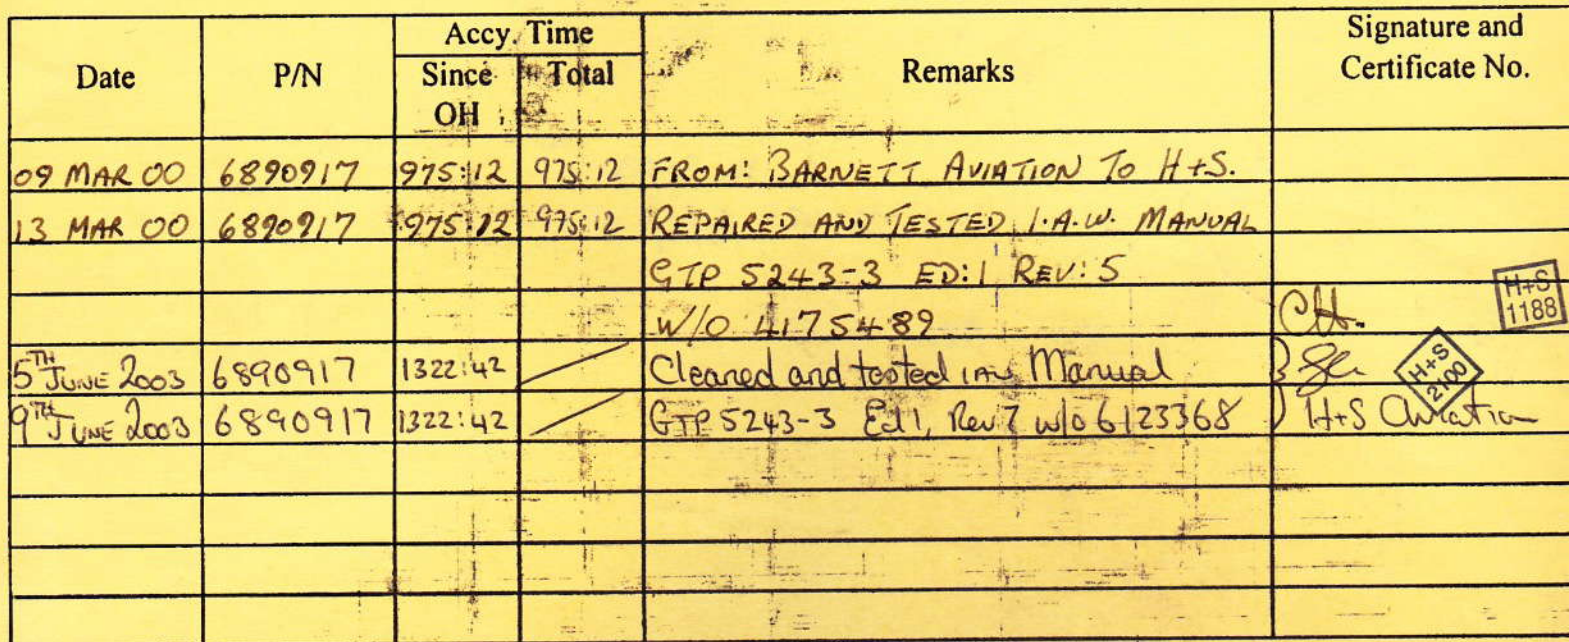 Date P/N Accy. Time Remarks Signature and Certificate No.
Since OH Total
09 MAR 00 6890917 975:12 975:12 FROM: BARNETT AVIATION TO H+S.
13 MAR 00 6890917 975:12 975:12 REPAIRED AND TESTED I.A.W. MANUAL
GTP 5243-3 ED:1 REV:5
H+S
1188
W/O 4175489
5TH JUNE 2003 6890917 1322:42 Cleaned and tested IAW Manual
H+S
2100
9TH JUNE 2003 6890917 1322:42 GTP 5243-3 Ed1, Rev 7 w/o 6123368 H+S Aviation